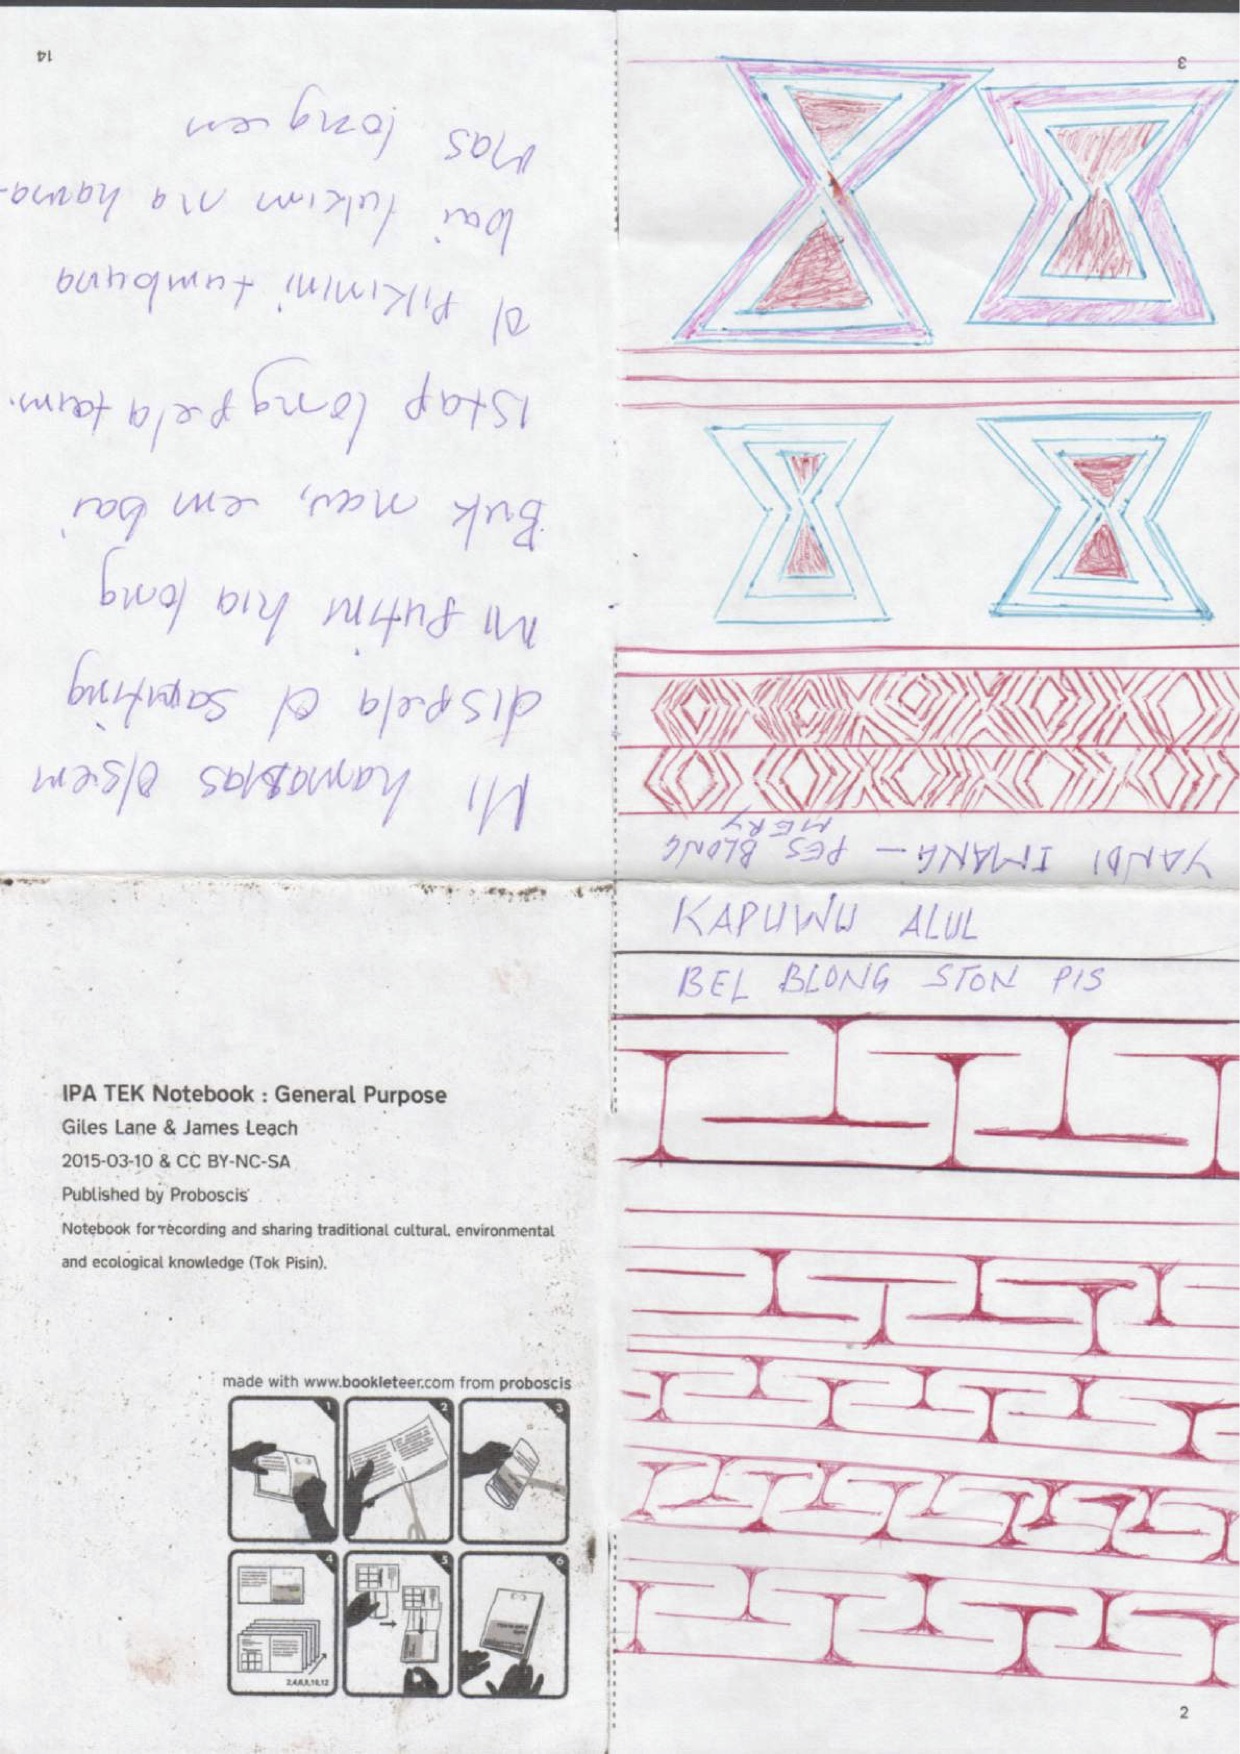 14
Mi hamamas olsem
dispela ol samting
mi putim hia long
Buk nau, em bai
istap longpela taim.
ol pikinini tumbuna
bai lukim na hama-
mas long em
3
YANDI IMANG - PES BLONG
MERY
KAPUWU ALUL
BEL BLONG STON PIS
IPA TEK Notebook : General Purpose
Giles Lane & James Leach
2015-03-10 & CC BY-NC-SA
Published by Proboscis
Notebook for recording and sharing traditional cultural, environmental
and ecological knowledge (Tok Pisin).
made with www.bookleteer.com from proboscis
1
2
3
4
5
6
2,4,6,8,10,12
2